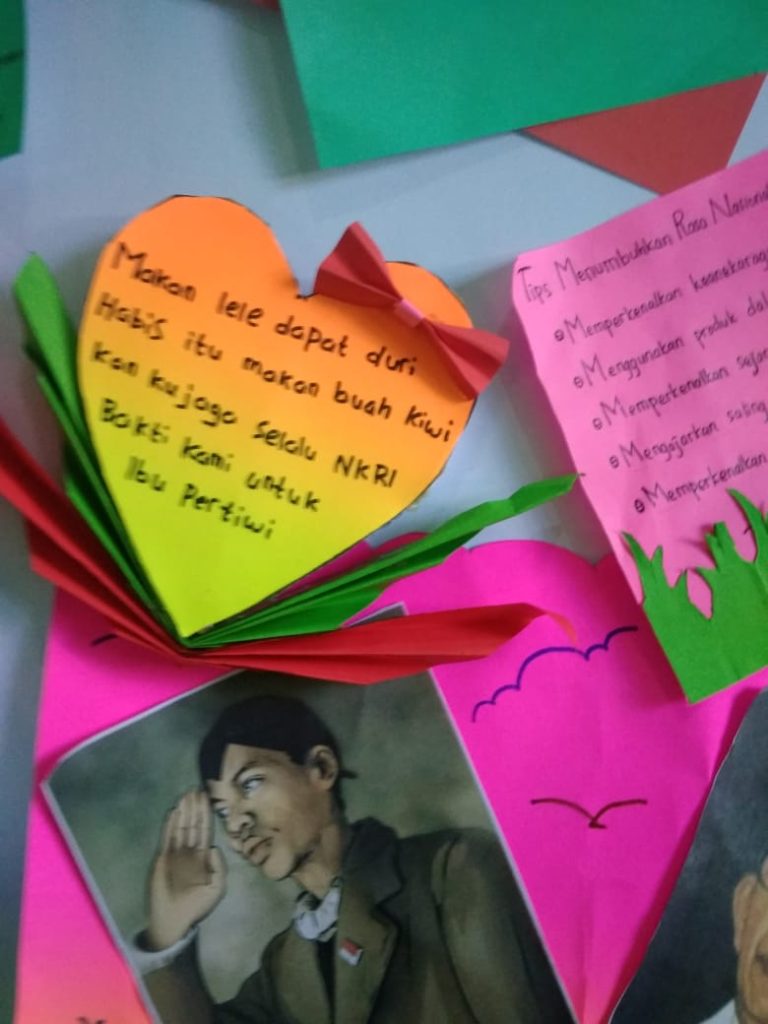 Makan lele dapat duri
Habis itu makan buah kiwi
kan kujaga selalu NKRI
Bakti kami untuk
Ibu Pertiwi
Tips Menumbuhkan Rasa
Memperkenalkan
Menggunakan produk
Memperkenalkan
Mengajarkan saling
Memperkenalkan